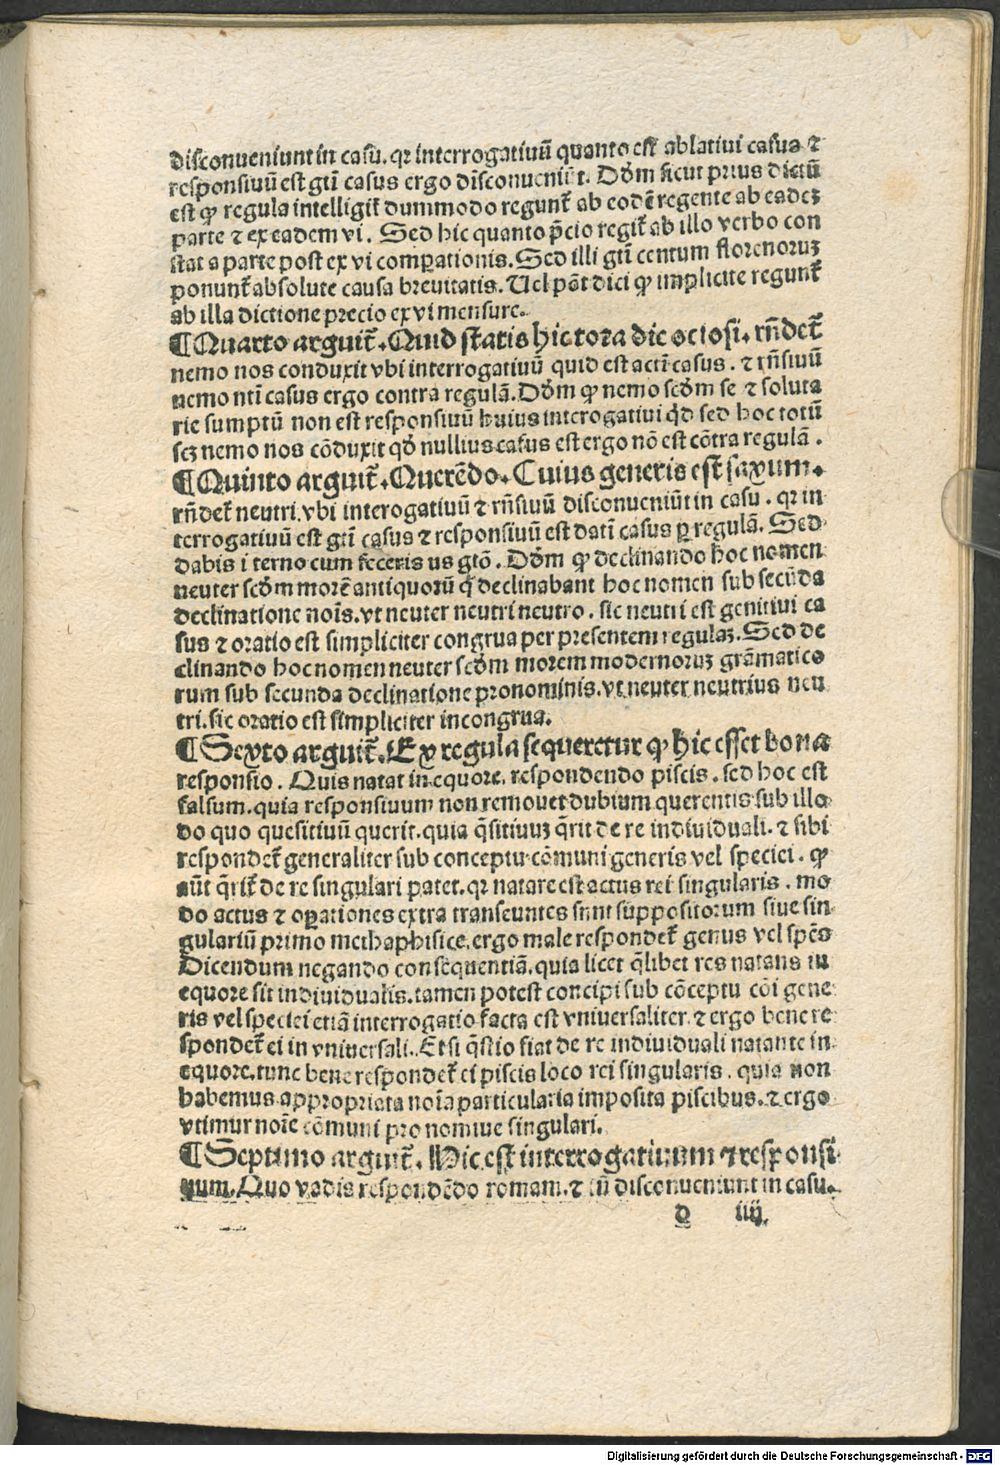 disconueniunt in casu. qꝛ interrogatiuū quanto est ablatiui casus ⁊
responsiuū est gti̅ casus ergo disconueniūt. Dd̄m sicut prius dictū
est ꝙ regula intelligit̄ dummodo regunt̄ ab eodē regente ab eadeꝫ
parte ⁊ ex eadem vi. Sed hic quanto p̄cio regit̄ ab illo verbo con
stat a parte post ex vi comꝑationis. Sed illi gti̅ centum florenoruꝫ
ponunt̄ absolute causa breuitatis. Uel pn̄t dici ꝙ implicite regunt̄
ab illa dictione precio ex vi mensure.
¶Quarto arguit̄. Quid statis hic tota die ociosi. rn̄det̄
nemo nos conduxit vbi interrogatiuū quid est acti̅ casus. ⁊ rn̄siuū
nemo nti̅ casus ergo contra regulā. Dd̄m ꝙ nemo scd̄m se ⁊ soluta
rie sumptū non est responsiuū huius interogatiui qd̄ sed hoc totū
scꝫ nemo nos cōduxit qd̄ nullius casus est ergo nō est cōtra regulā.
¶Quinto arguit̄. Querēdo. Cuius generis est saxum.
rn̄det̄ neutri. vbi interogatiuū ⁊ rn̄siuū disconueniūt in casu. qꝛ in
terrogatiuū est gti̅ casus ⁊ responsiuū est dati̅ casus ꝑ regulā. Sed
dabis i terno cum feceris us gtō. Dd̄m ꝙ declinando hoc nomen
neuter scd̄m morē antiquorū q̄ declinabant hoc nomen sub secūda
declinatione nois̄. vt neuter neutri neutro. sic neutri est genitiui ca
sus ⁊ oratio est simpliciter congrua per presentem regulaꝫ. Sed de
clinando hoc nomen neuter scd̄m morem modernoruꝫ grāmatico
rum sub secunda declinatione pronominis. vt neuter neutrius neu
tri. sic oratio est simpliciter incongrua.
¶Sexto arguit̄. Ex regula sequeretur ꝙ hic esset bona
responsio. Quis natat in equore. respondendo piscis. sed hoc est
falsum. quia responsiuum non remouet dubium querentis sub illo
do quo quesitiuū querit. quia q̄sitiuuꝫ q̄rit de re indiuiduali. ⁊ sibi
respondet̄ generaliter sub conceptu cōmuni generis vel speciei. ꝙ
aūt q̄rit̄ de re singulari patet. qꝛ natare est actus rei singularis. mo
do actus ⁊ oꝑationes extra transeuntes sunt suppositorum siue sin
gulariū primo methaphisice. ergo male respondet̄ genus vel spēs
Dicendum negando consequentiā. quia licet q̄libet res natans in
equore sit indiuidualis. tamen potest concipi sub cōceptu cōi gene
ris vel speciei etiā interrogatio facta est vniuersaliter. ⁊ ergo bene re
spondet̄ ei in vniuersali. Et si q̄stio fiat de re indiuiduali natante in
equore. tunc bene respondet̄ ei piscis loco rei singularis. quia non
habemus appropriata noia̅ particularia imposita piscibus. ⁊ ergo
vtimur noie̅ cōmuni pro nomine singulari.
¶Septimo arguit̄. Hic est interrogatiuum ⁊ responsi
uum. Quo vadis respondēdo romam. ⁊ tn̄ disconueniunt in casu.
d iiij
Digitalisierung gefördert durch die Deutsche Forschungsgemeinschaft - DFG